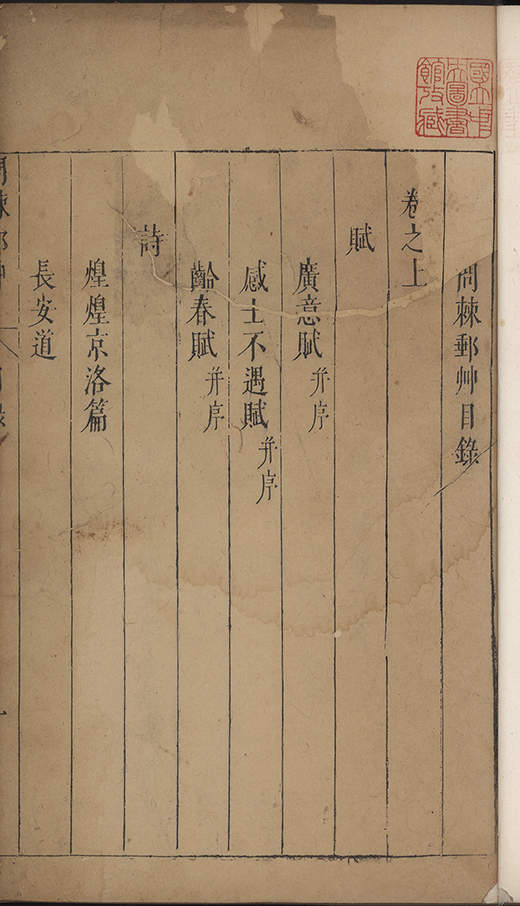 問棘郵艸目錄
卷之上
賦
廣意賦并序
感士不遇賦并序
齡春賦并序
詩
煌煌京洛篇
長安道
國立中央圖書館收藏